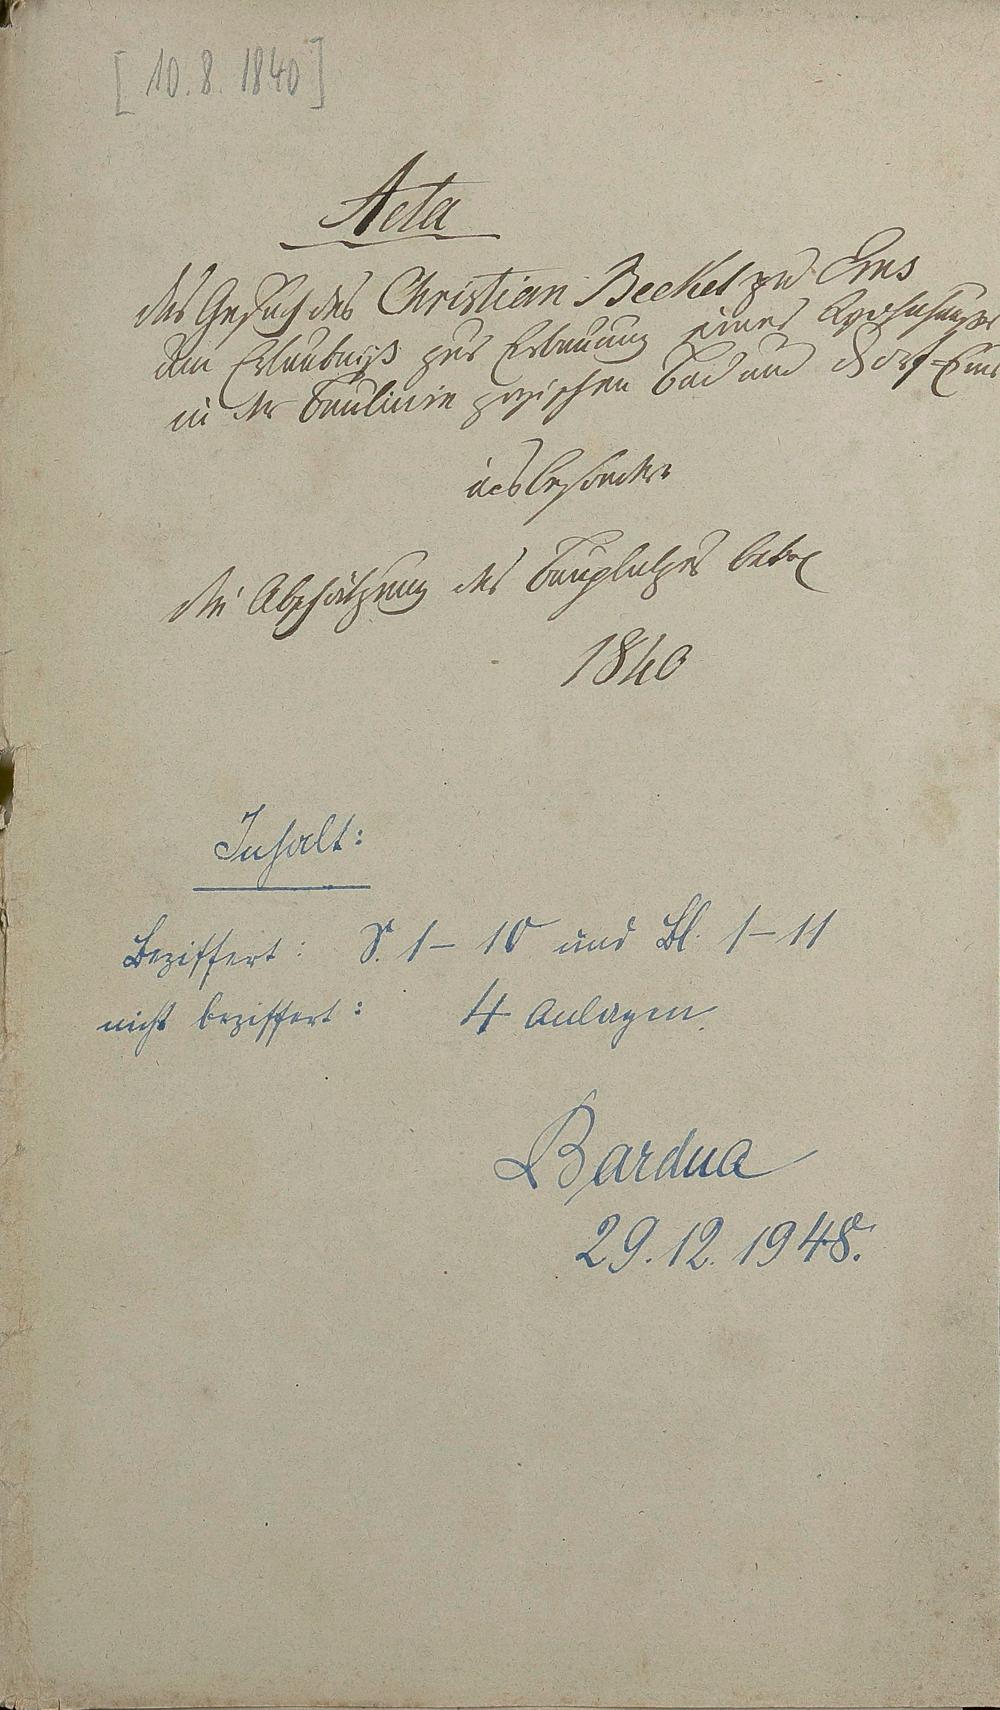 [10. 8. 1840]
Acta
das Gesuch des Christian Beckel zu Ems
um Erlaubniß zur Erbauung eines Wohnhauses
in der Baulinie zwischen Bad und Dorf-Ems
insbesondere
die Abschätzung des Bauplatzes betr
1840
Inhalt:
Beziffert: S. 1–10 und Bl. 1–11
nicht beziffert: 4 Anlagen.
Bardua
29.12.1948.